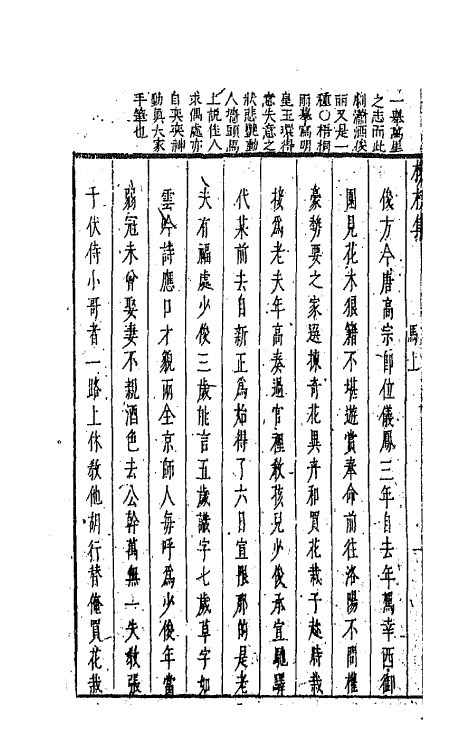 一舉萬里
之志而此
劇瀟洒俊
丽又是一
種〇梧桐
雨摹寫明
皇玉環得
意失意之
狀悲艷動
人墻頭馬
上說佳人
求偶處亦
自奕奕神
動真大家
手筆也
柳枝集 馬上 一
俊方今唐高宗即位儀鳳三年自去年駕幸西御
園見花木狼籍不堪遊賞奉命前往洛陽不問權
豪勢要之家選揀奇花異卉和買花栽子趁時栽
接為老夫年高奏過官裡教孩兒少俊承宣馳驛
代某前去自新正為始得了六日宣限那的是老
夫有福處少俊三歲能言五歲識字七歲草字如
雲吟詩應口才貌兩全京師人每呼為少俊年當
弱冠未曾娶妻不親酒色去公幹萬無一失教張
千伏侍小哥者一路上休教他胡行替俺買花栽